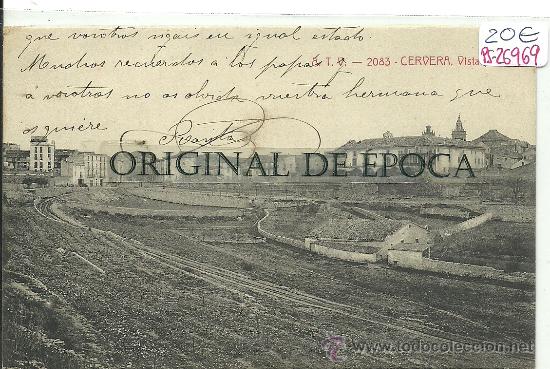 que vosotros sigais en igual estado.
A. T. V. — 2083 - CERVERA. Vista
Muchos recuerdos a los papas y
á vosotros no os olvida vuestra hermana que
os quiére
20€
PS-26969
ORIGINAL DE EPOCA
www.todocoleccion.net